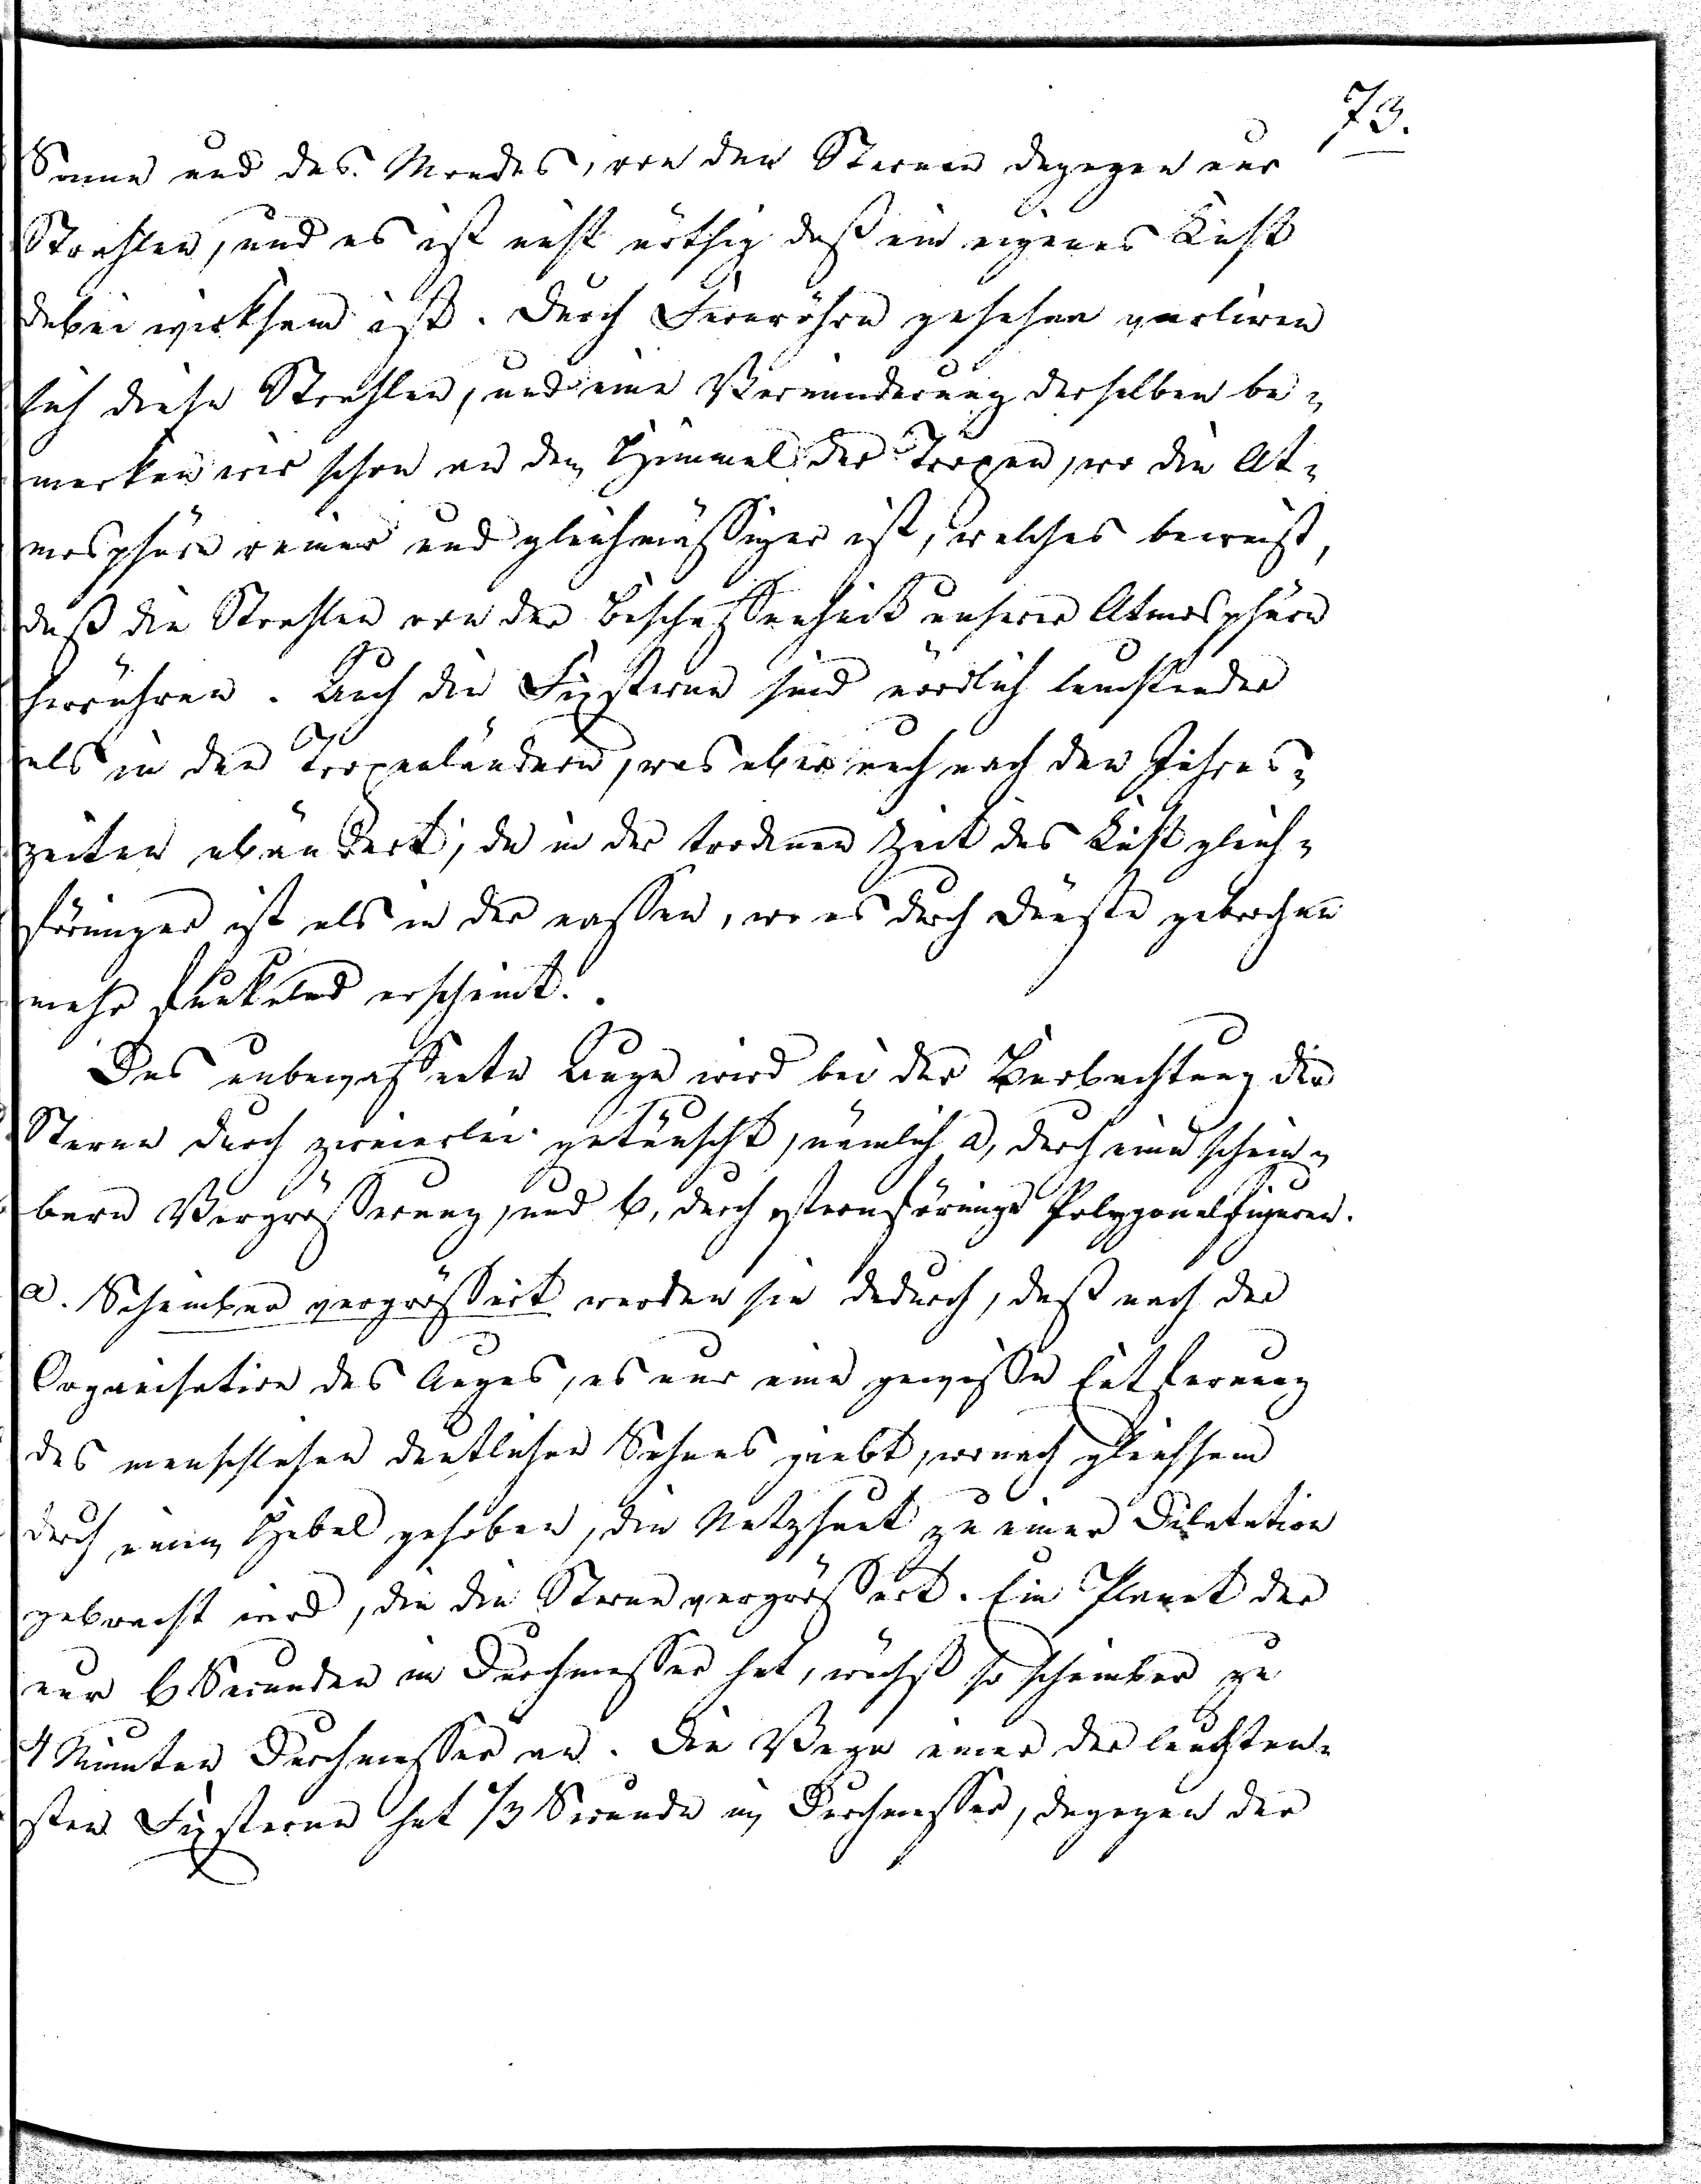 73.
Sonne und des Mondes, von den Sternen dagegen nur
Strahlen, und es ist nicht nöthig daß ein eigenes Licht
dabei wirksam ist. Durch Fernröhre gesehen verliren
sich diese Strahlen, und eine Verminderung derselben be-
merken wir schon an dem Himmel der Tropen, wo die At-
mosphäre reiner und gleichmässiger ist, welches beweist,
daß die Strahlen von der Beschaffenheit unserer Atmosphäre
herrühren. Auch die Fixsterne sind nördlich leuchtender
als in den Tropenländern, was aber auch nach den Jahres-
zeiten abändert, da in der trockenen Zeit das Licht gleich-
förmiger ist als in der nassen, wo es durch Dünste gebrochen
mehr funkelnd erscheint.
Das unbewaffnete Auge wird bei der Beobachtung der
Sterne durch zweierlei getäuscht, nämlich a, durch eine schein-
bare Vergrösserung, und b, durch sternförmige Polygonalfiguren.
a. Scheinbar vergrössert werden sie dadurch, daß nach der
Organisation des Auges, es nur eine gewisse Entfernung
des menschlichen deutlichen Sehens giebt, wonach gleichsam
durch einen Hebel gehoben, die Netzhaut zu einer Dilatation
gebracht wird, die die Sterne vergrössert. Ein Planet der
nur 6 Secunden im Durchmesser hat, wächst so scheinbar zu
4 Minuten Durchmesser an. Die Wega einer der leuchten-
sten Fixsterne hat 1/3 Secunde im Durchmesser, dagegen der